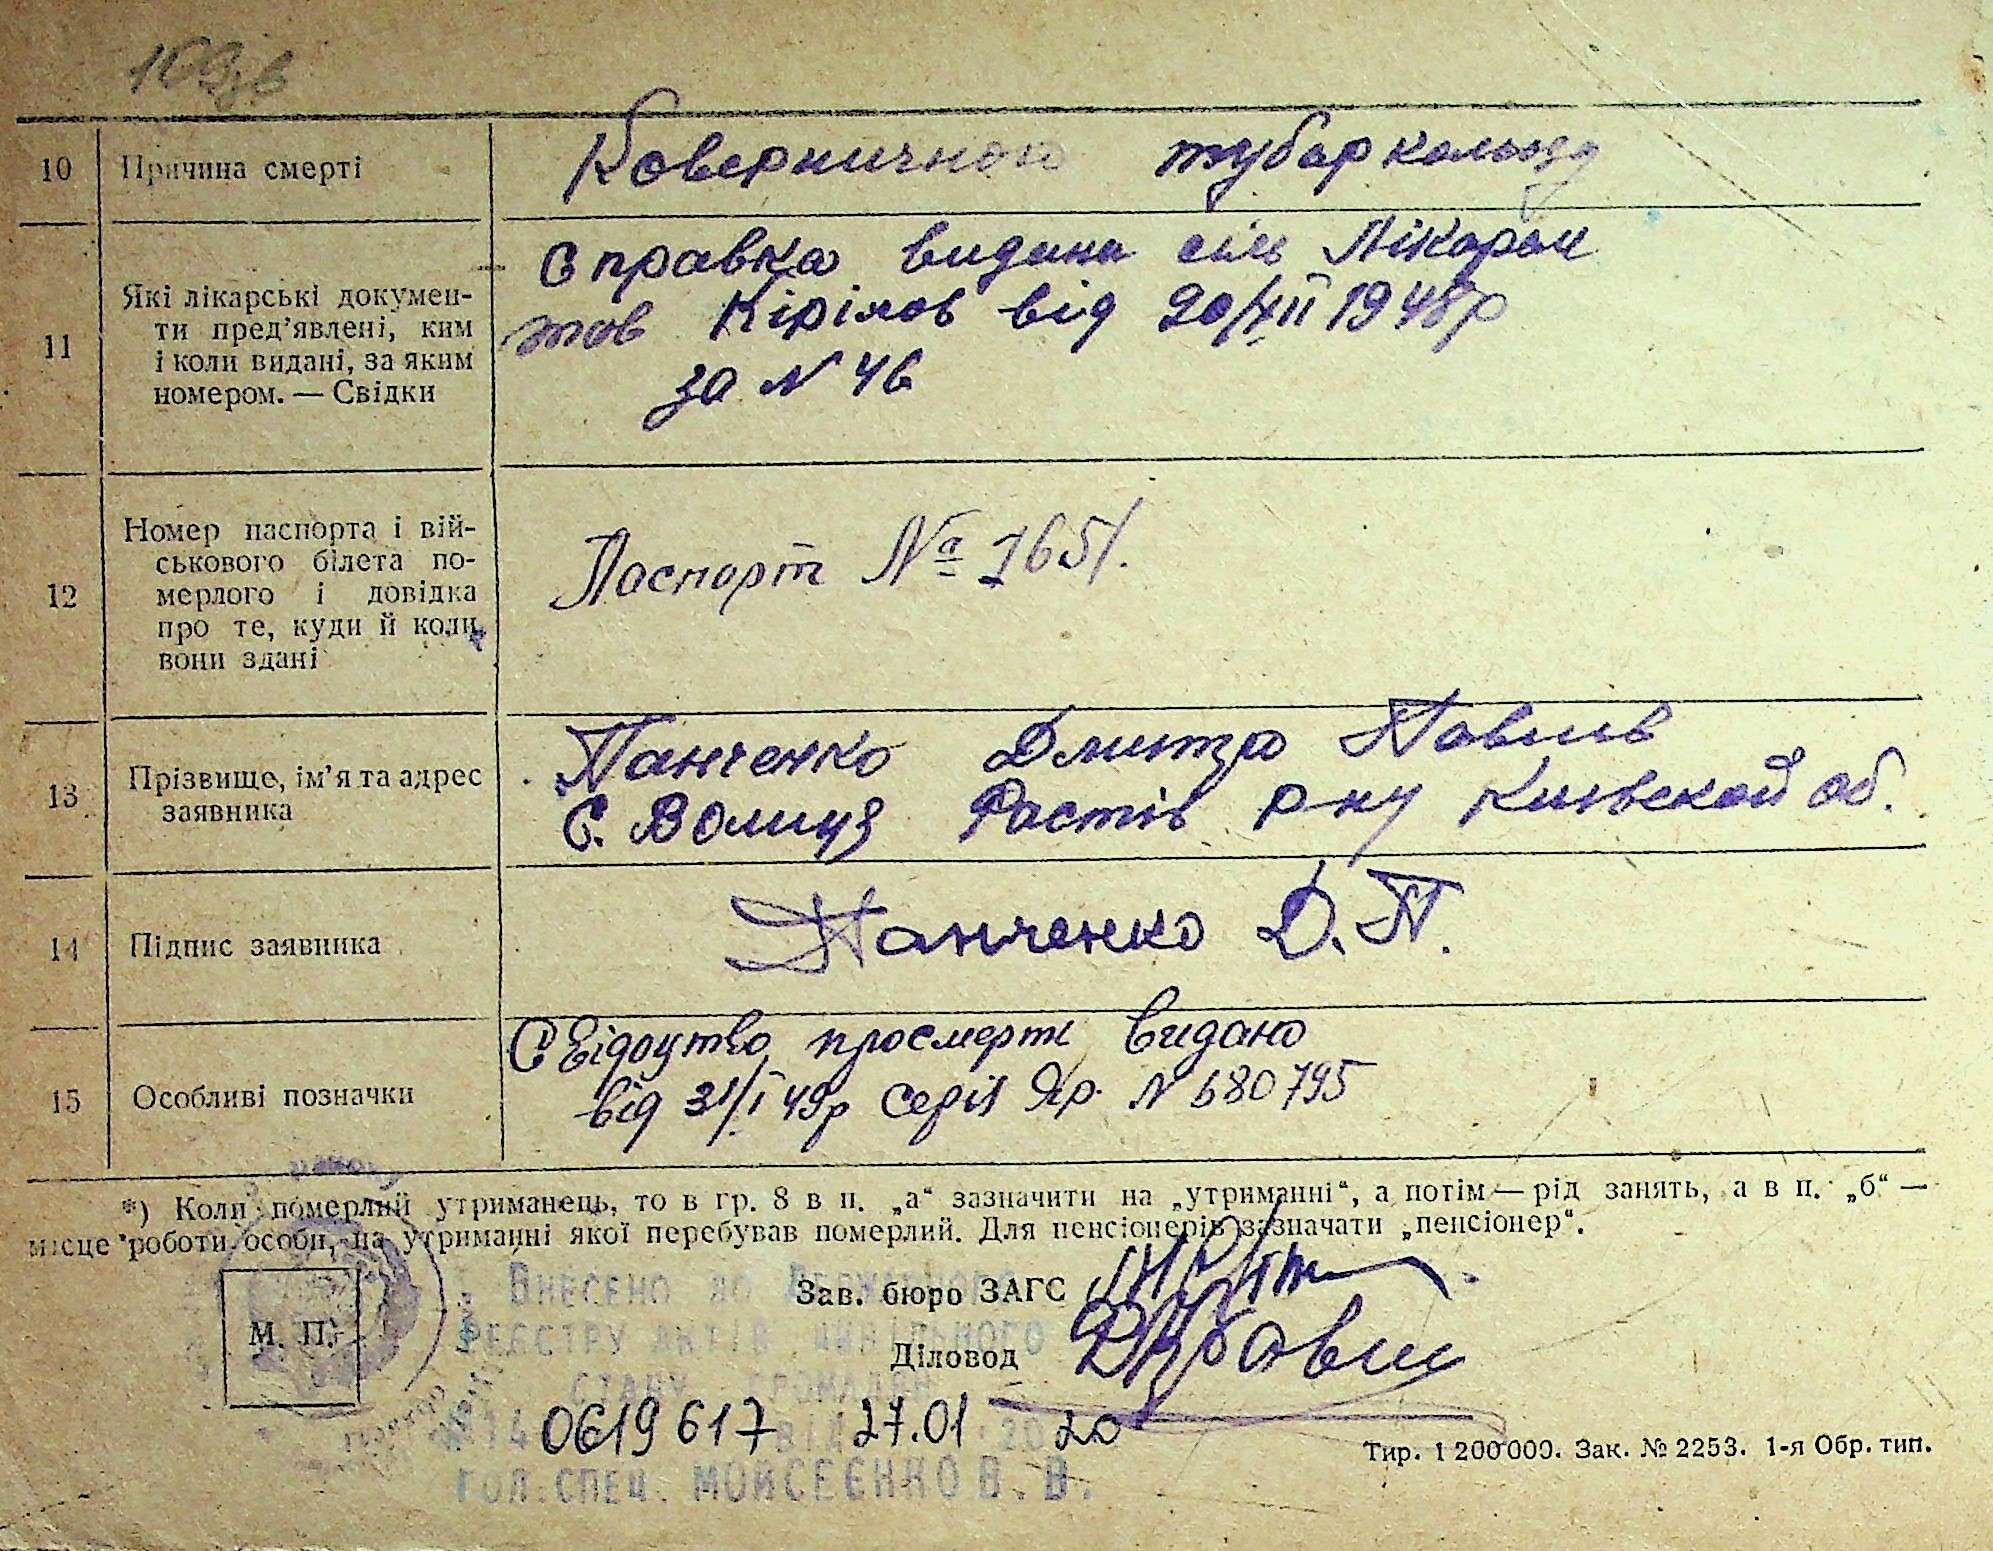 10 Причина смерті
Коверничною туберкольозу
11 Які лікарські докумен-
ти пред’явлені, ким
і коли видані, за яким
номером. — Свідки
Справка видана сіль Лікарем
тов Кірілов від 20/XII 1948р
за N 46
12 Номер паспорта і вій-
ськового білета по-
мерлого і довідка
про те, куди й коли
вони здані
Паспорт № 1651.
13 Прізвище, ім’я та адрес
заявника
Панченко Дмитро Павлив
С. Волиця Фастів р-ну Киевской об.
14 Підпис заявника
Панченко Д. П.
15 Особливі позначки
Свідоцтво просмерть видано
від 31/I 49р серія Яр. N 680795
*) Коли померлий утриманець, то в гр. 8 в п. „а“ зазначити на „утриманні“, а потім — рід занять, а в п. „б“ —
місце роботи особи, на утриманні якої перебував померлий. Для пенсіонерів зазначати „пенсіонер“.
Зав. бюро ЗАГС
М. П.
Діловод
Внесено до Державного
реєстру актів цивільного
стану громадян
№14 0619617 від 27.01 2020
Гол.спец. Мойсеєнко В. В.
Тир. 1 200 000. Зак. № 2253. 1-я Обр. тип.